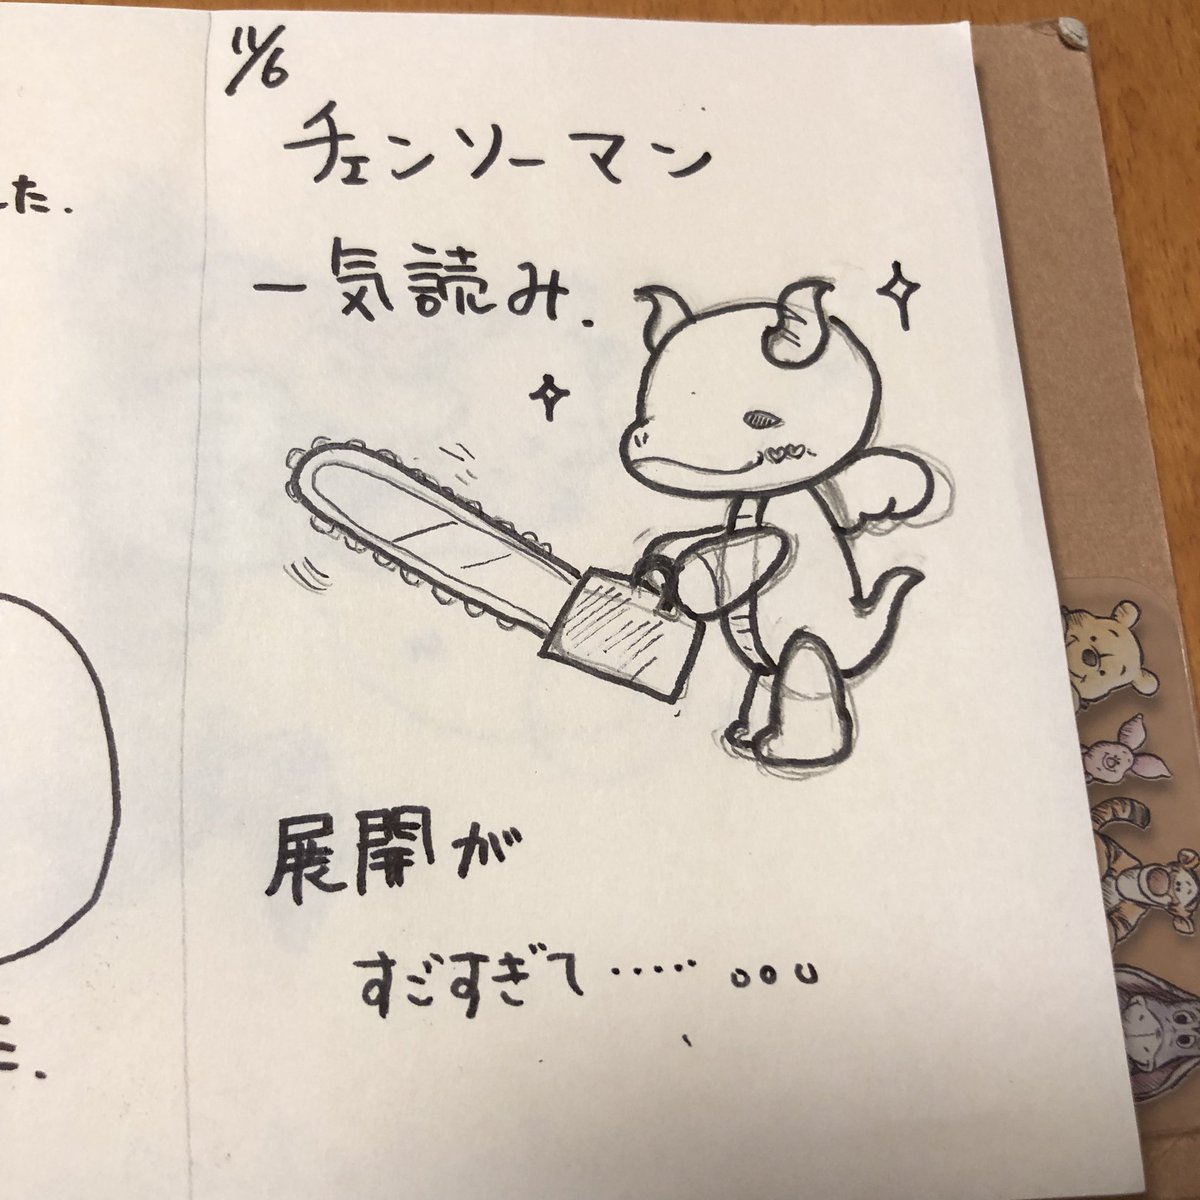 11/6
チェンソーマン
一気読み.
展開が
すごすぎて........。。。
した.
た.